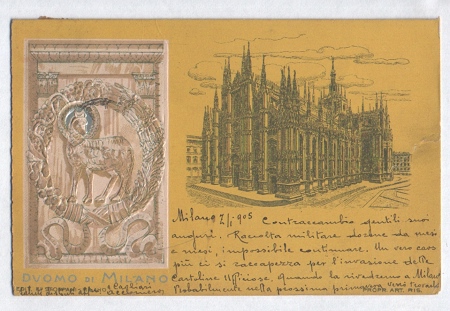 Milano 7/1 905 Contraccambio gentili suoi
auguri. Raccolta militare dorme da mesi
e mesi, impossibile continuare. Un vero caos
più ci si raccapezza per l'invasione delle
Cartoline Ufficiose. Quando la rivedremo a Milano
Probabilmente nella prossima primavera
DVOMO DI MILANO
Cagliari
PROPR. ART. RIS.